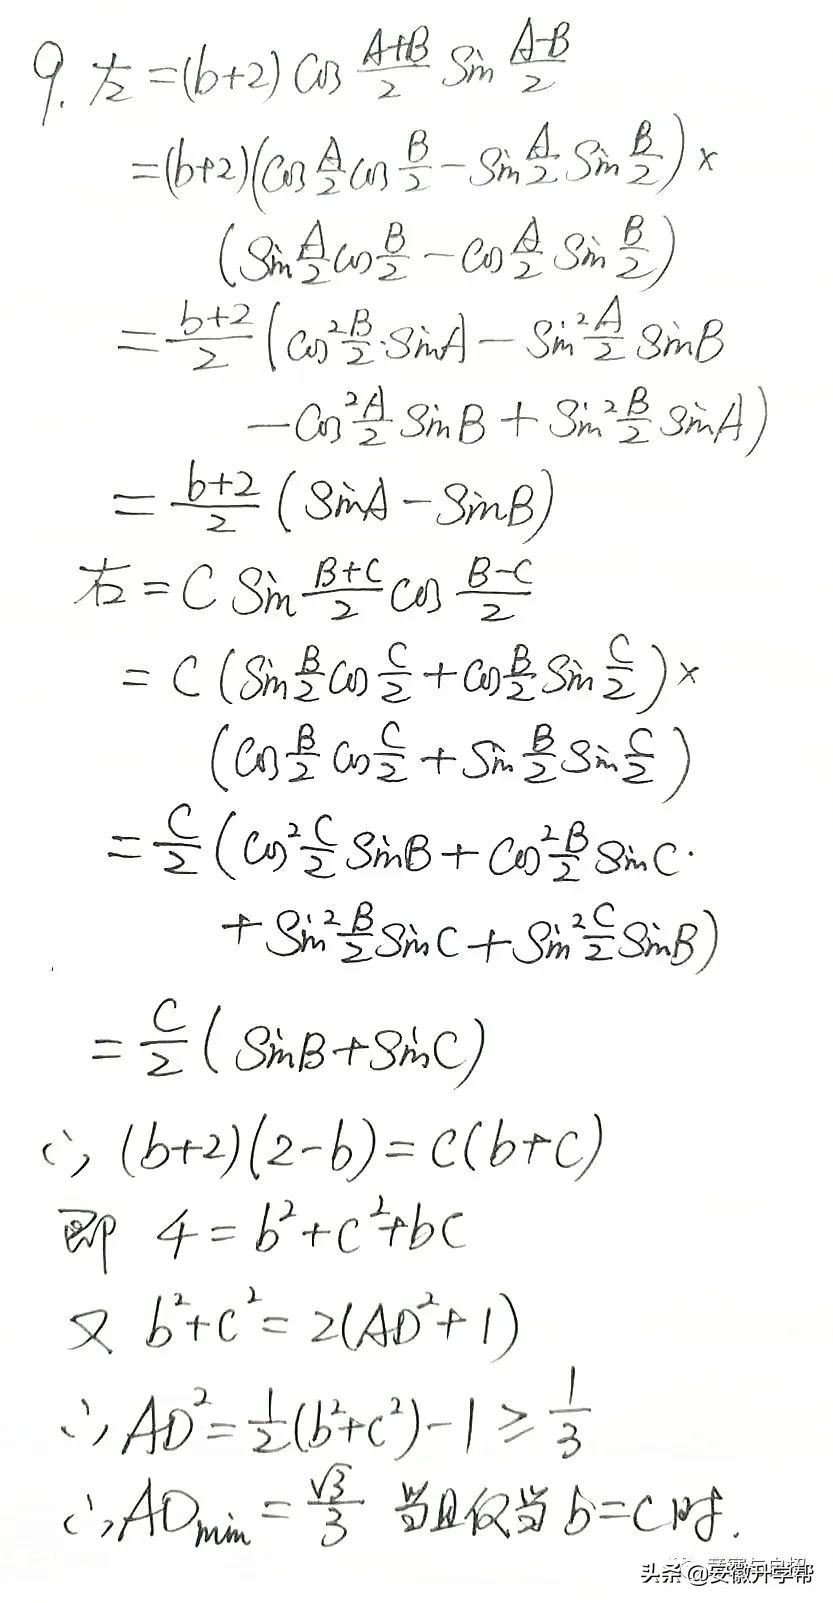 9. 左=(b+2) cos (A+B)/2 sin (A-B)/2
=(b+2)(cos A/2 cos B/2 - sin A/2 sin B/2)×
(sin A/2 cos B/2 - cos A/2 sin B/2)
= (b+2)/2 (cos² B/2 · sinA - sin² A/2 sinB
- cos² A/2 sinB + sin² B/2 sinA)
= (b+2)/2 (sinA - sinB)
右 = C sin (B+C)/2 cos (B-C)/2
= C (sin B/2 cos C/2 + cos B/2 sin C/2)×
(cos B/2 cos C/2 + sin B/2 sin C/2)
= C/2 (cos² C/2 sinB + cos² B/2 sinC ·
+ sin² B/2 sinC + sin² C/2 sinB)
= C/2 (sinB + sinC)
∴ (b+2)(2-b) = C(b+C)
即 4 = b² + c² + bc
又 b² + c² = 2(AD² + 1)
∴ AD² = 1/2 (b² + c²) - 1 ≥ 1/3
∴ ADmin = √3/3 当且仅当 b = C 时.
头条 @安徽升学帮